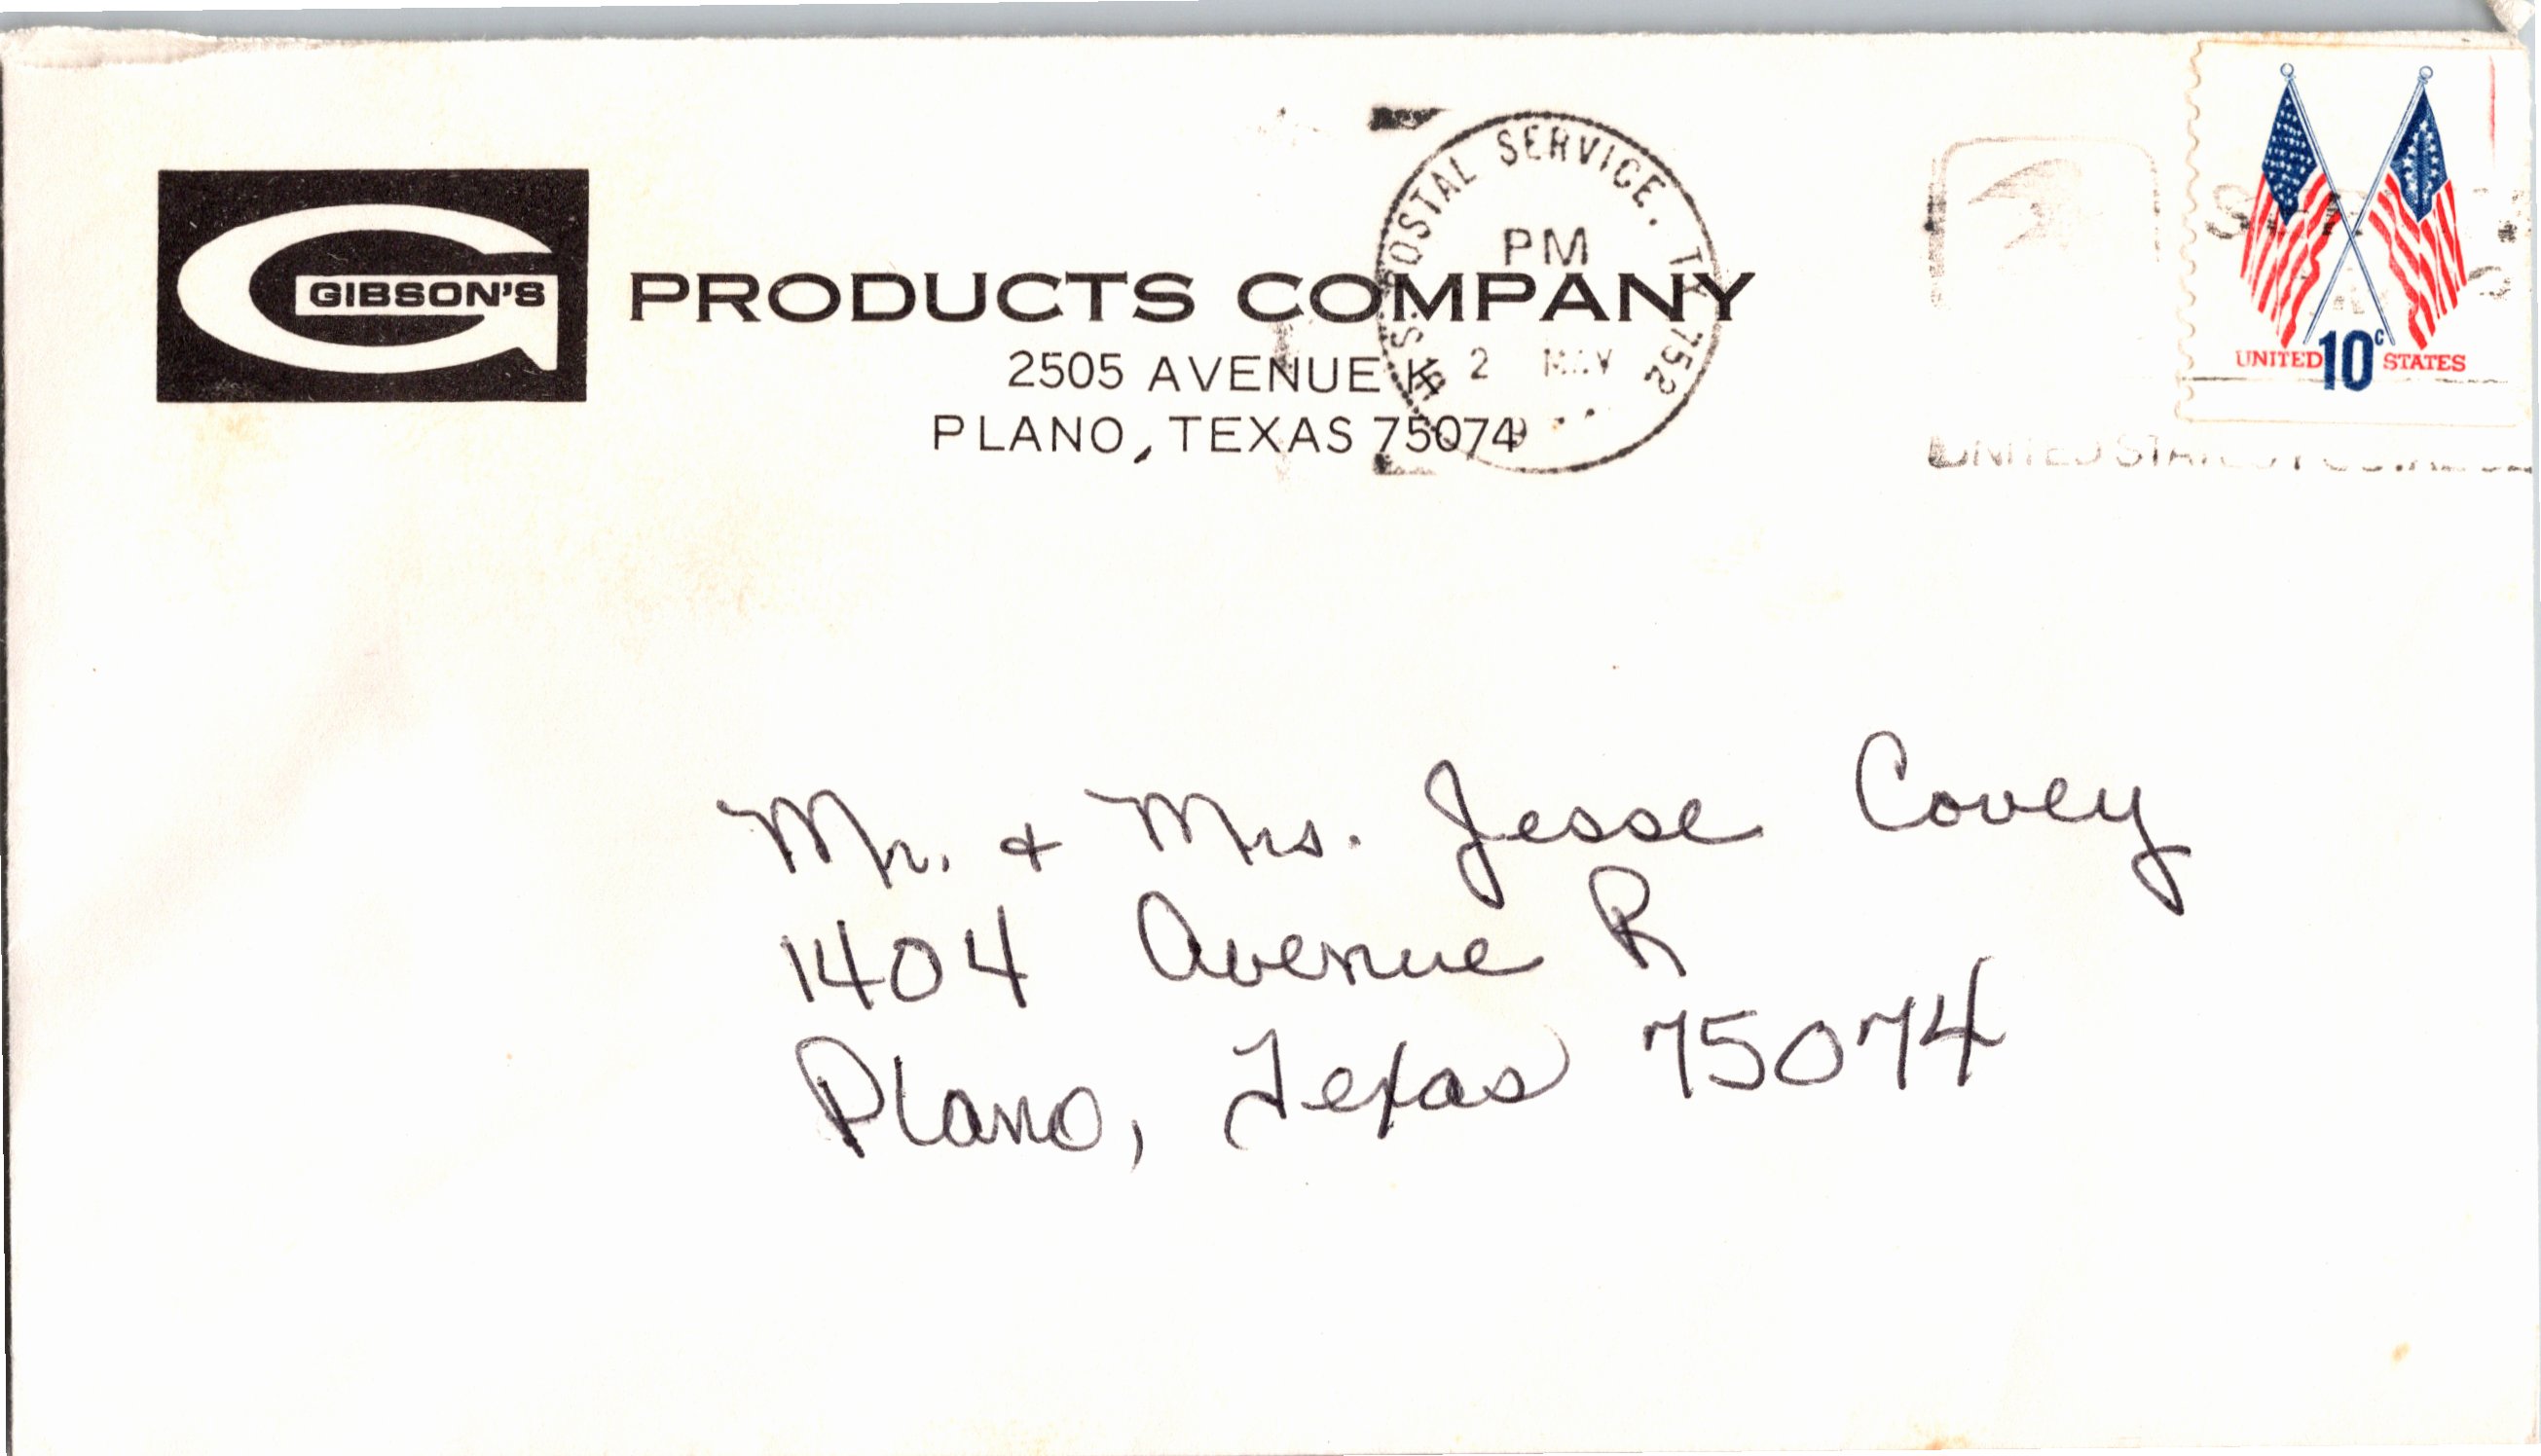 GIBSON'S PRODUCTS COMPANY
2505 AVENUE K
PLANO, TEXAS 75074
U.S. POSTAL SERVICE, TX 752
PM
2 MAY
UNITED 10c STATES
UNITED STATES
Mr. & Mrs. Jesse Covey
1404 Avenue R
Plano, Texas 75074